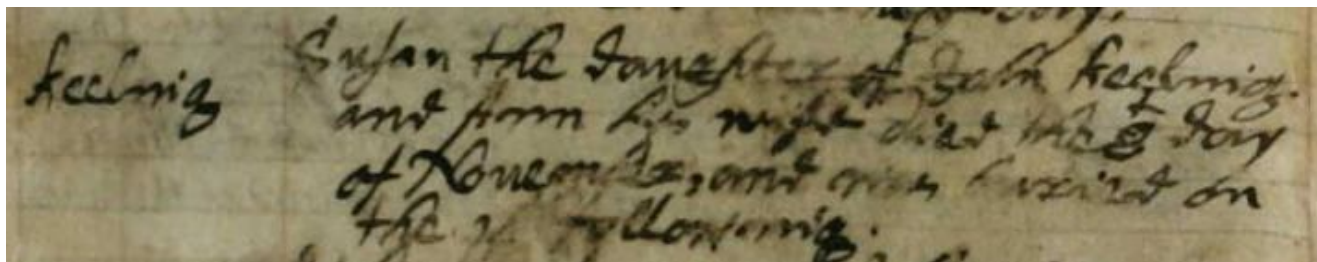 Keelinig Susan the daughter of John Keelinig.
and Ann his wife died the 8 day
of November, and was buried on
the following.